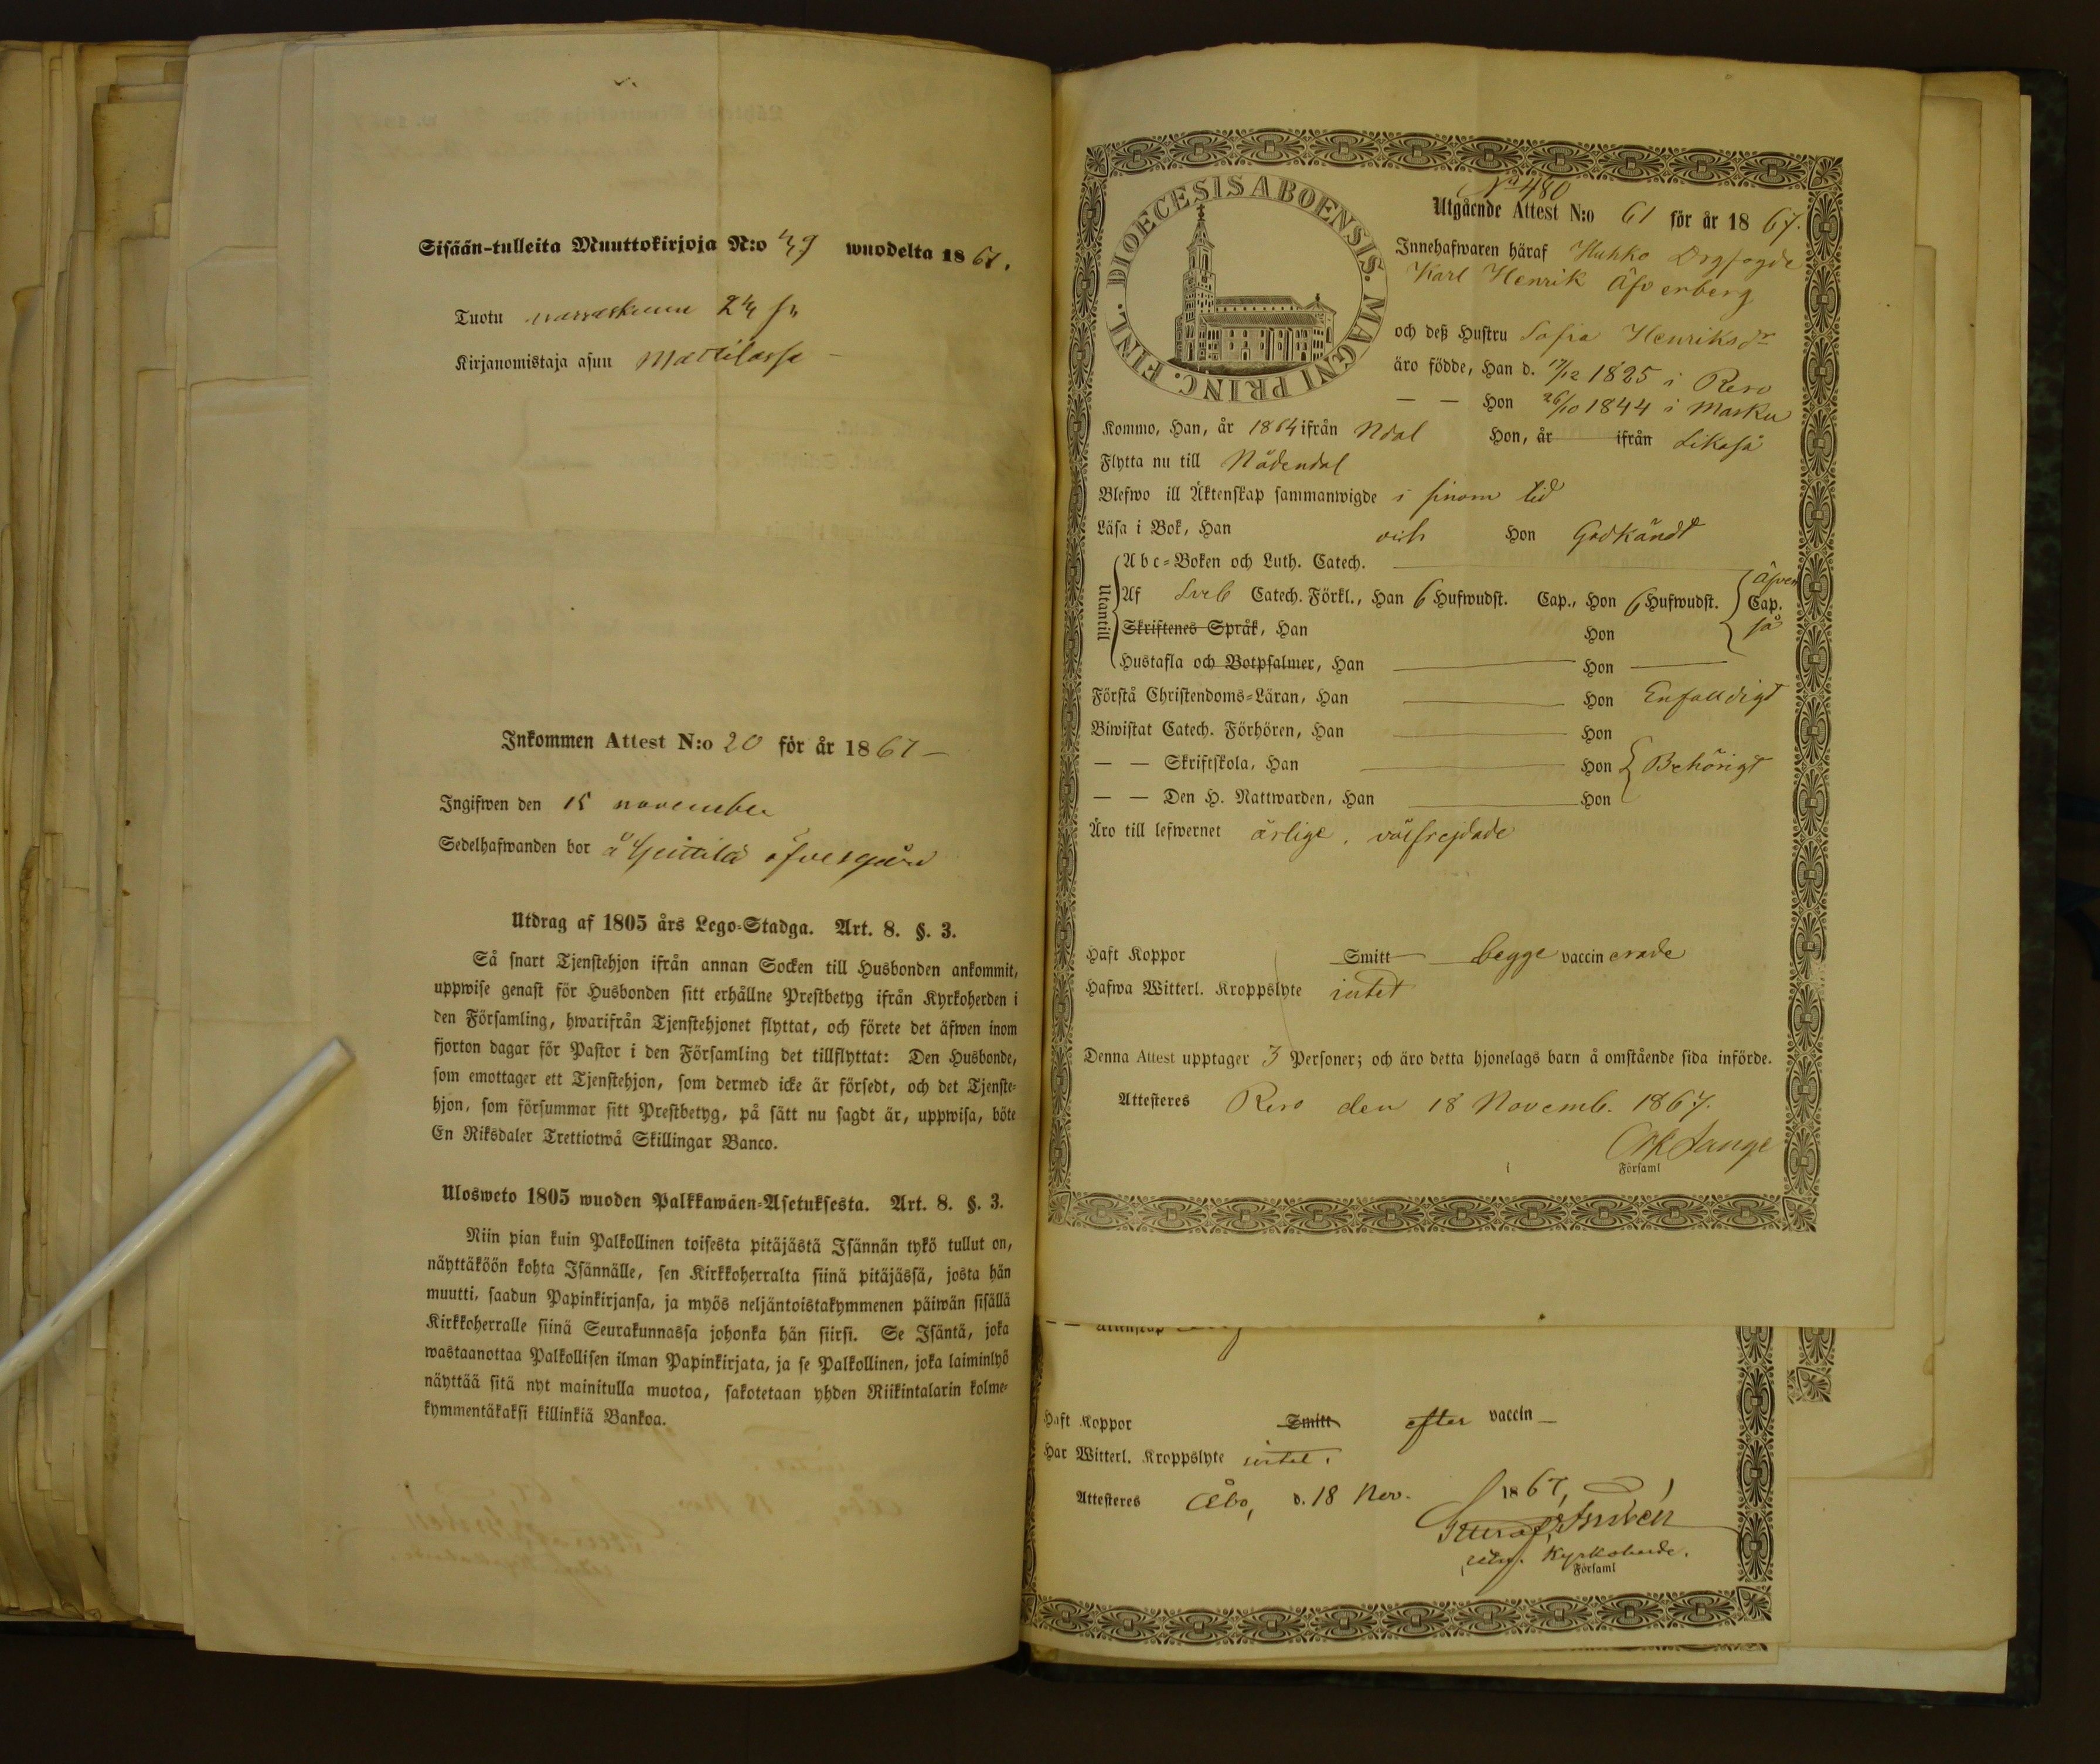 Sisään-tulleita Muuttokirjoja N:o 49 wuodelta 1867.
Tuotu marraskuun 24 pn
Kirjanomistaja asuu Mattilassa
Inkommen Attest N:o 20 för år 1867
Ingifwen den 15 november
Sedelhafwanden bor å öfvergård
Utdrag af 1805 års Lego-Stadga. Art. 8. §. 3.
Så snart Tjenstehjon ifrån annan Socken till Husbonden ankommit,
uppwise genast för Husbonden sitt erhållne Prestbetyg ifrån Kyrkoherden i
den Församling, hwarifrån Tjenstehjonet flyttat, och förete det äfwen inom
fjorton dagar för Pastor i den Församling det tillflyttat: Den Husbonde,
som emottager ett Tjenstehjon, som dermed icke är försedt, och det Tjenste-
hjon, som försummar sitt Prestbetyg, på sätt nu sagdt är, uppwisa, böte
En Riksdaler Trettiotwå Skillingar Banco.
Ulosweto 1805 wuoden Palkkawäen-Asetuksesta. Art. 8. §. 3.
Niin pian kuin Palkollinen toisesta pitäjästä Isännän tykö tullut on,
näyttäköön kohta Isännälle, sen Kirkkoherralta siinä pitäjässä, josta hän
muutti, saadun Papinkirjansa, ja myös neljäntoistakymmenen päiwän sisällä
Kirkkoherralle siinä Seurakunnassa johonka hän siirsi. Se Isäntä, joka
wastaanottaa Palkollisen ilman Papinkirjata, ja se Palkollinen, joka laiminlyö
näyttää sitä nyt mainitulla muotoa, sakotetaan yhden Riikintalarin kolme-
kymmentäkaksi killinkiä Bankoa.
DIOECESIS ABOENSIS. MAGNI PRINC. FINL.
No 480
Utgående Attest N:o 61 för år 1867.
Innehafwaren häraf Huhko Drgfogde
Karl Henrik Äfverberg
och deß Hustru Sofia Henriksdr
äro födde, Han d. 17/12 1825 i Reso
— — Hon 26/10 1844 i Masku
Kommo, Han, år 1864 ifrån Ndal Hon, år ifrån Likaså
Flytta nu till Nådendal
Blefwo ill Äktenskap sammanwigde i sinom tid
Läsa i Bok, Han och Hon Godkändt
Utantill
Abc-Boken och Luth. Catech.
Af Sveb Catech. Förkl., Han 6 Hufwudst. Cap., Hon 6 Hufwudst. Cap.
äfven
så
Skriftenes Språk, Han Hon
Hustafla och Botpsalmer, Han Hon
Förstå Christendoms-Läran, Han Hon Enfalldigt
Biwistat Catech. Förhören, Han Hon
— — Skriftskola, Han Hon Behörigt
— — Den H. Nattwarden, Han Hon
Äro till lefwernet ärlige, välfrejdade
Haft Koppor Smitt begge vaccinerade
Hafwa Witterl. Kroppslyte intet
Denna Attest upptager 3 Personer; och äro detta hjonelags barn å omstående sida införde.
Attesteres Reso den 18 Novemb. 1867.
Lange
i Församl
Haft Koppor Smitt efter vaccin
Har Witterl. Kroppslyte intet.
Attesteres Åbo, d. 18 Nov. 1867,
Kyrkoherde.
Församl